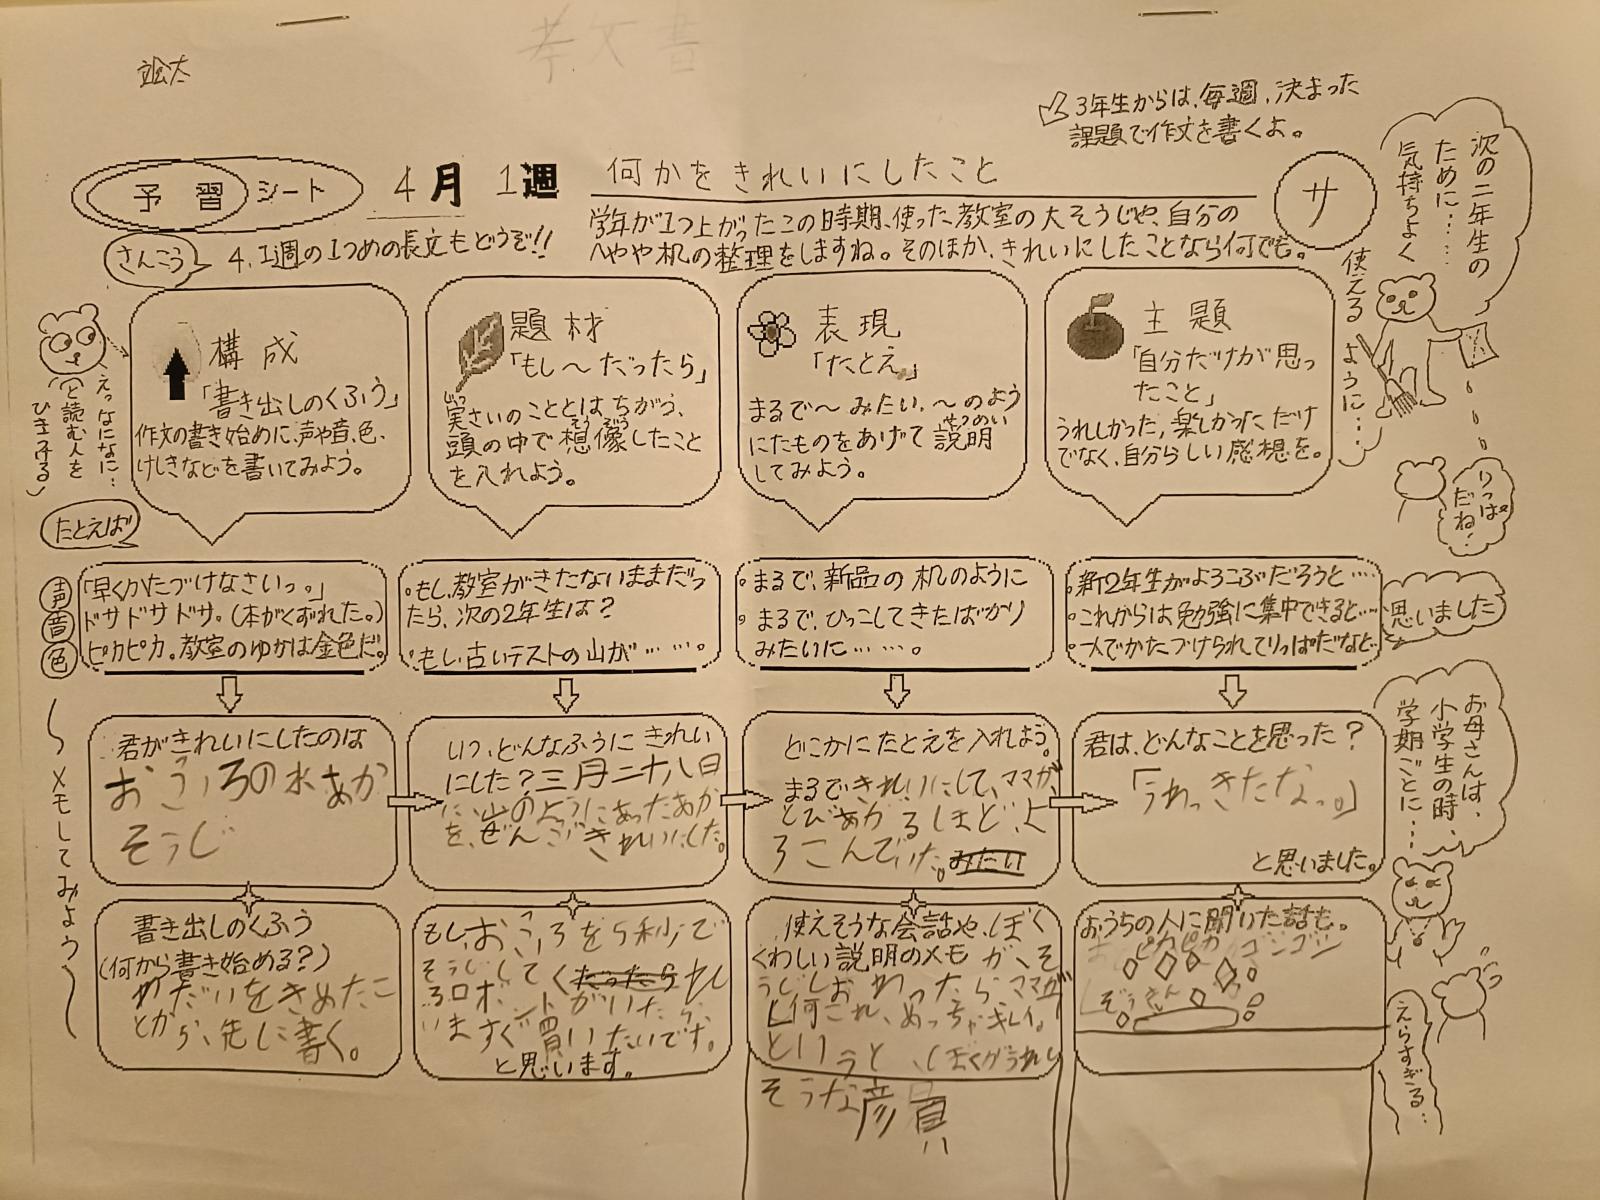 考文書
竑太
3年生からは、毎週、決まった
課題で作文を書くよ。
予習シート
4月1週
何かをきれいにしたこと
サ
学年が1つ上がったこの時期、使った教室の大そうじや、自分の
へやや机の整理をしますね。そのほか、きれいにしたことなら何でも。
さんこう
4.1週の1つめの長文もどうぞ!!
次の二年生の
ために……
気持ちよく
使える
ように…
りっぱ
だね!
えっなになに…
と読む人を
ひきつける
構成
「書き出しのくふう」
作文の書き始めに、声や音、色、
けしきなどを書いてみよう。
題材
「もし〜だったら」
実さいのこととはちがう、
じっ
頭の中で想像したこと
そうぞう
を入れよう。
表現
「たとえ」
まるで〜みたい、〜のよう
にたものをあげて説明
せつめい
してみよう。
主題
「自分だけが思っ
たこと」
うれしかった,楽しかっただけ
でなく、自分らしい感想を。
たとえば
声
音
色
「早くかたづけなさいっ。」
ドサドサドサ。(本がくずれた。)
ピカピカ。教室のゆかは金色だ。
・もし、教室がきたないままだっ
たら、次の2年生は?
・もし、古いテストの山が……。
・まるで、新品の机のように
・まるで、ひっこしてきたばかり
みたいに……。
・新2年生がよろこぶだろうと…
・これからは勉強に集中できると…
・一人でかたづけられてりっぱだなと…
思いました
メモしてみよう
君がきれいにしたのは
おふろの水あか
そうじ
いつ、どんなふうにきれい
にした?三月二十八日
に、山のようにあったあか
を、ぜんぶきれいにした。
どこかにたとえを入れよう。
まるできれいにして、ママが、
とびあがるほど、よ
ろこんでいた。みたい
君は、どんなことを思った?
「うわっきたなっ。」
と思いました。
お母さんは、
小学生の時、
学期ごとに…
書き出しのくふう
(何から書き始める?)
わだいをきめたこ
とから、先に書く。
もし、おふろを5秒で
そうじしてくたったられ
るロボットがいたら、
いますぐ買いたいです。
と思います。
使えそうな会話や、ぼく
くわしい説明のメモが、そ
うじしおわったらママが
「何これ、めっちゃキレイ。
というと、ぼくがうれし
そうな顔
おうちの人に聞いた話も。
ピカピカ
ゴシゴシ
ぞうきん
えらすぎる…